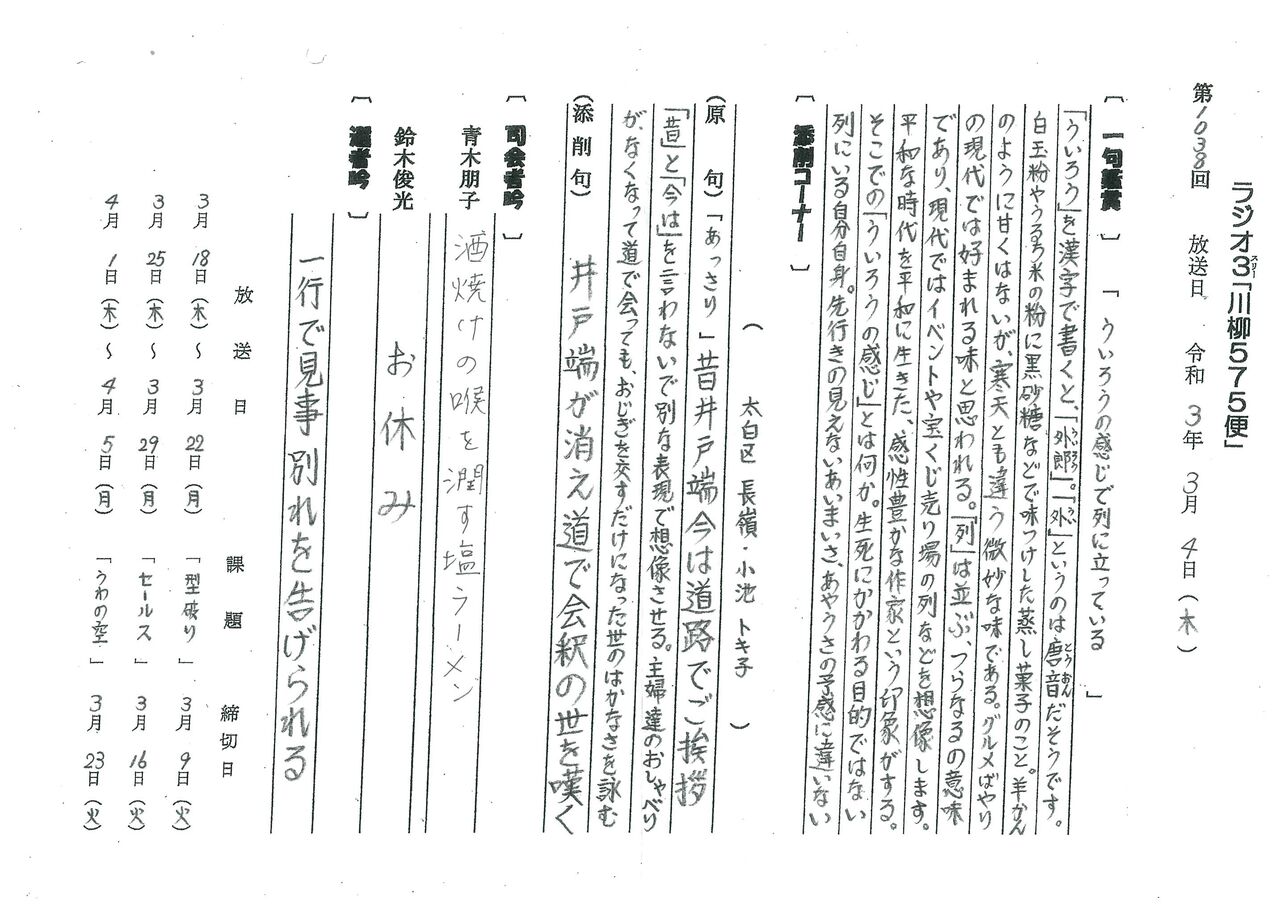 ラジオ3「川柳575便」
第1038回 放送日 令和 3年 3月 4日(木)
〔一句鑑賞〕「ういろうの感じで列に立っている」
「ういろう」を漢字で書くと、「外郎」。「外」というのは唐音だそうです。
白玉粉やうるち米の粉に黒砂糖などで味つけした蒸し菓子のこと。羊かん
のように甘くはないが、寒天とも違う微妙な味である。グルメばやり
の現代では好まれる味と思われる。「列」は並ぶ、つらなるの意味
であり、現代ではイベントや宝くじ売り場の列などを想像します。
平和な時代を平和に生きた、感性豊かな作家という印象がする。
そこでの「ういろうの感じ」とは何か。生死にかかわる目的ではない
列にいる自分自身。先行きの見えないあいまいさ、あやうさの予感に違いない
〔添削コーナー〕
(太白区 長嶺・小池トキ子)
(原 句)「あっさり」昔井戸端今は道路でご挨拶
「昔」と「今は」を言わないで別な表現で想像させる。主婦達のおしゃべり
が、なくなって道で会っても、おじぎを交すだけになった世のはかなさを詠む
(添削句) 井戸端が消え道で会釈の世を嘆く
〔司会者吟〕
青木朋子 酒焼けの喉を潤す塩ラーメン
鈴木俊光 お休み
〔選者吟〕
一行で見事別れを告げられる
放送日 課題 締切日
3月 18日(木)~ 3月 22日(月) 「型破り」 3月 9日(火)
3月 25日(木)~ 3月 29日(月) 「セールス」 3月 16日(火)
4月 1日(木)~ 4月 5日(月) 「うわの空」 3月 23日(火)